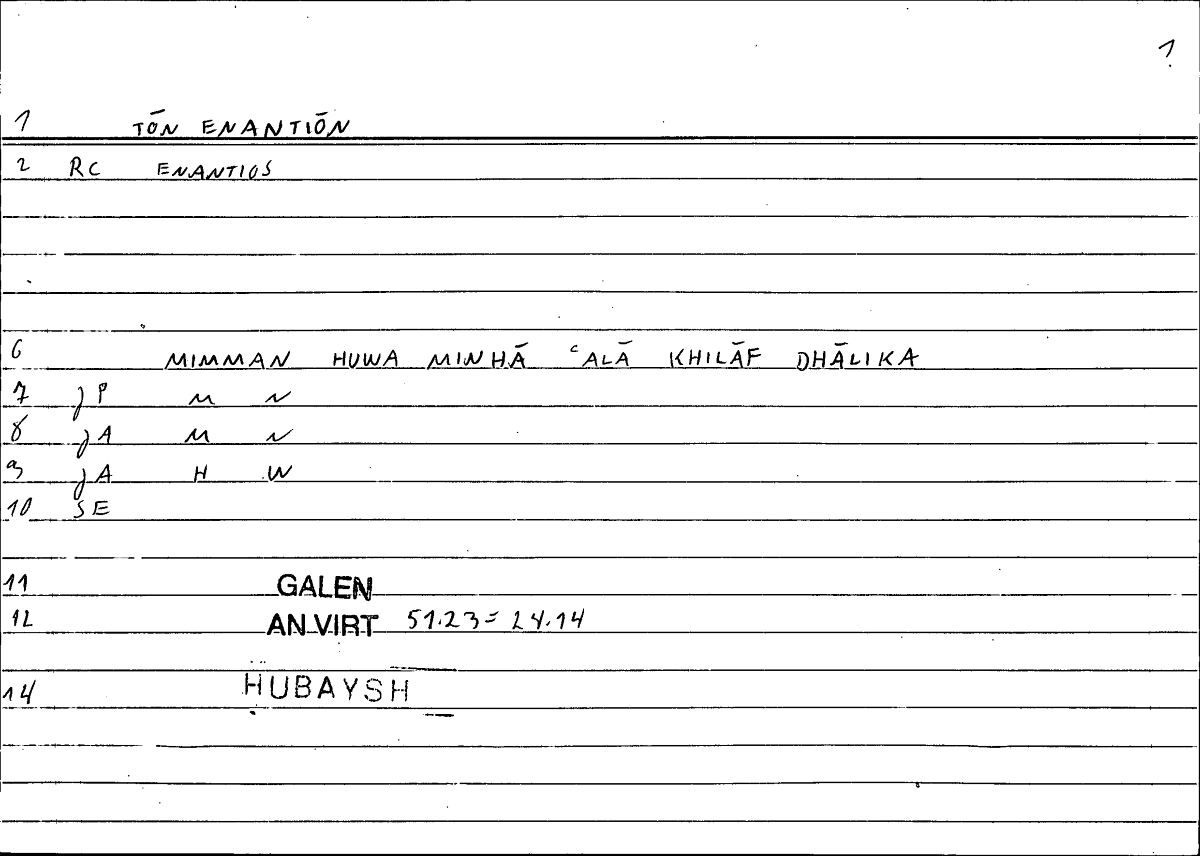 1
1 TŌN ENANTIŌN
2 RC ENANTIOS
6 MIMMAN HUWA MINHĀ ʿALĀ KHILĀF DHĀLIKA
7 JP M N
8 JA M N
9 JA H W
10 SE
11 GALEN
12 AN.VIRT 51.23 = 24.14
14 ḤUBAYSH